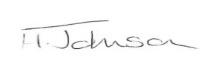 H. Johnson